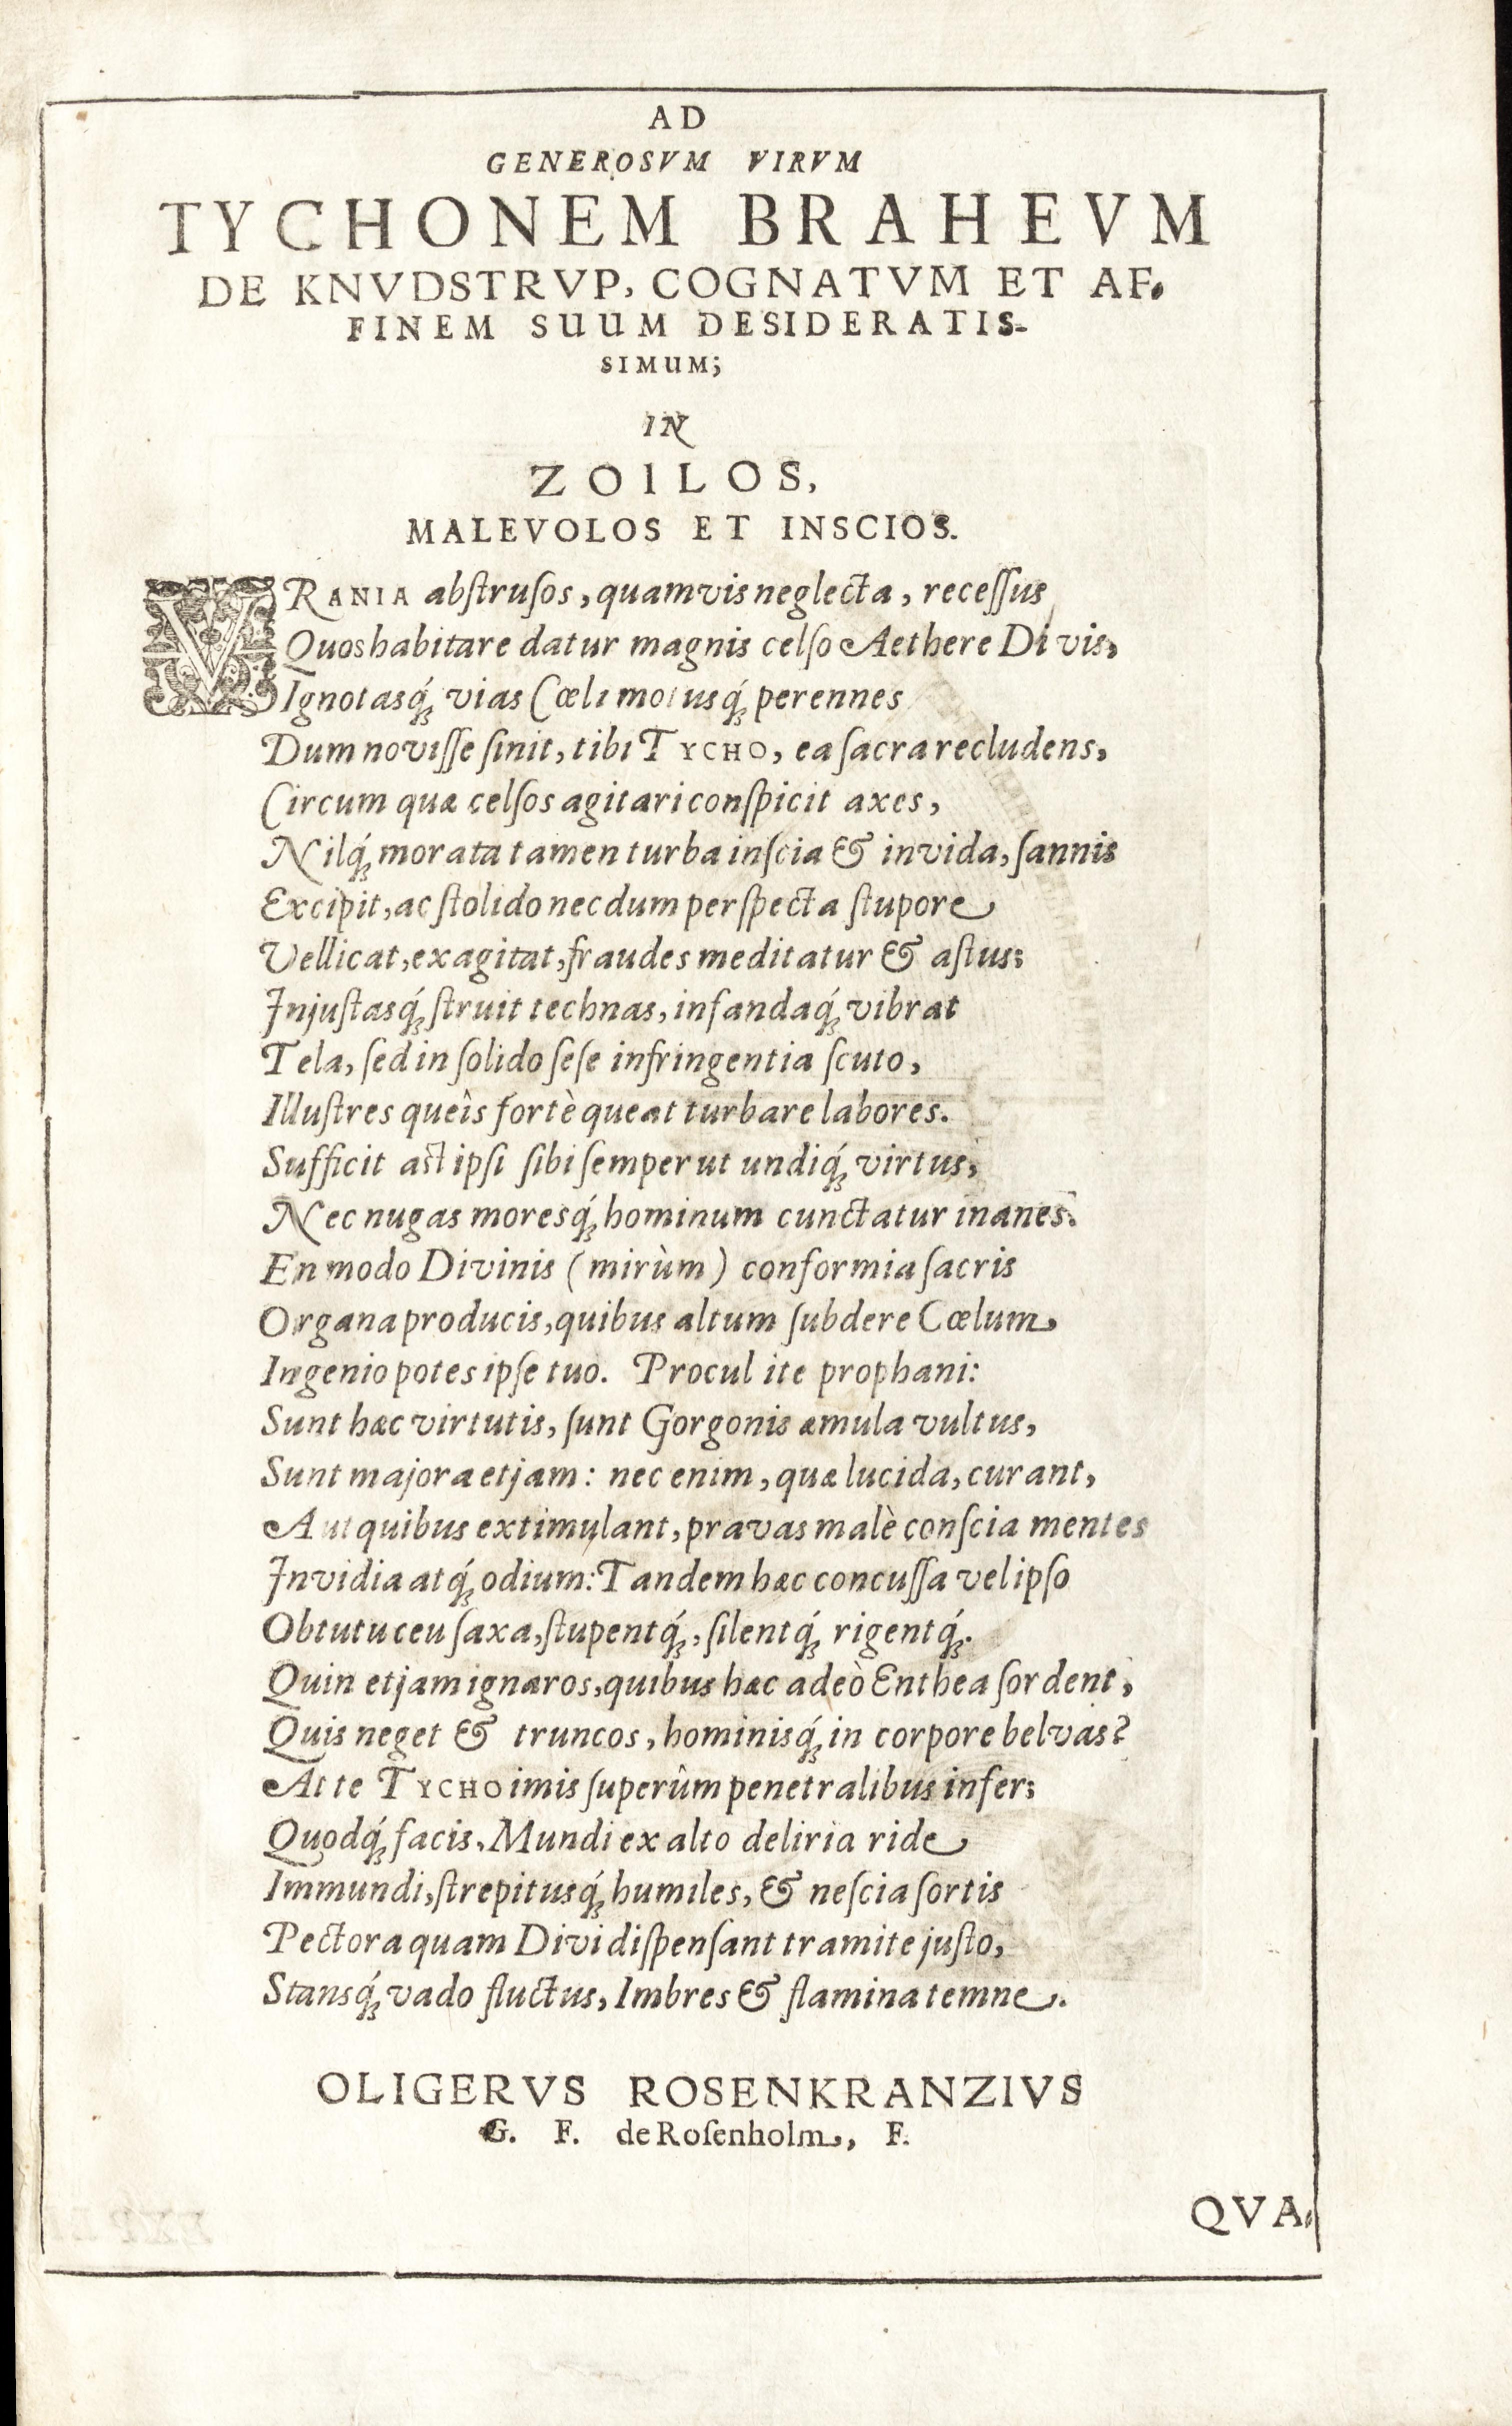 AD
GENEROSVM VIRVM
TYCHONEM BRAHEVM
DE KNVDSTRVP, COGNATVM ET AF-
FINEM SUUM DESIDERATIS-
SIMUM;
IN
ZOILOS,
MALEVOLOS ET INSCIOS.
VRANIA abſtruſos, quamvis neglecta, receſſus
Quos habitare datur magnis celſo Aethere Divis,
Ignotasq́; vias Cœli motusq́; perennes
Dum noviſſe ſinit, tibi TYCHO, ea ſacra recludens,
Circum quæ celſos agitari conſpicit axes,
Nilq́; morata tamen turba inſcia & invida, ſannis
Excipit, ac ſtolido necdum perſpecta ſtupore
Vellicat, exagitat, fraudes meditatur & aſtus;
Injuſtasq́; ſtruit technas, infandaq́; vibrat
Tela, ſed in ſolido ſeſe infringentia ſcuto,
Illuſtres queîs fortè queat turbare labores.
Sufficit aſt ipſi ſibi ſemper ut undiq́; virtus,
Nec nugas moresq́; hominum cunctatur inanes.
En modo Divinis (mirùm) conformia ſacris
Organa producis, quibus altum ſubdere Cœlum
Ingenio potes ipſe tuo. Procul ite prophani:
Sunt hæc virtutis, ſunt Gorgonis æmula vultus,
Sunt majora etjam: nec enim, quæ lucida, curant,
Aut quibus extimulant, pravas malè conſcia mentes
Invidia atq́; odium: Tandem hæc concuſſa vel ipſo
Obtutu ceu ſaxa, ſtupentq́;, ſilentq́; rigentq́;.
Quin etjam ignaros, quibus hæc adeò Enthea ſordent,
Quis neget & truncos, hominisq́; in corpore belvas?
At te TYCHO imis ſuperûm penetralibus infer;
Quodq́; facis, Mundi ex alto deliria ride
Immundi, ſtrepitusq́; humiles, & neſcia ſortis
Pectora quam Divi diſpenſant tramite juſto,
Stansq́; vado fluctus, Imbres & flamina temne.
OLIGERVS ROSENKRANZIVS
G. F. de Roſenholm, F.
QVA-